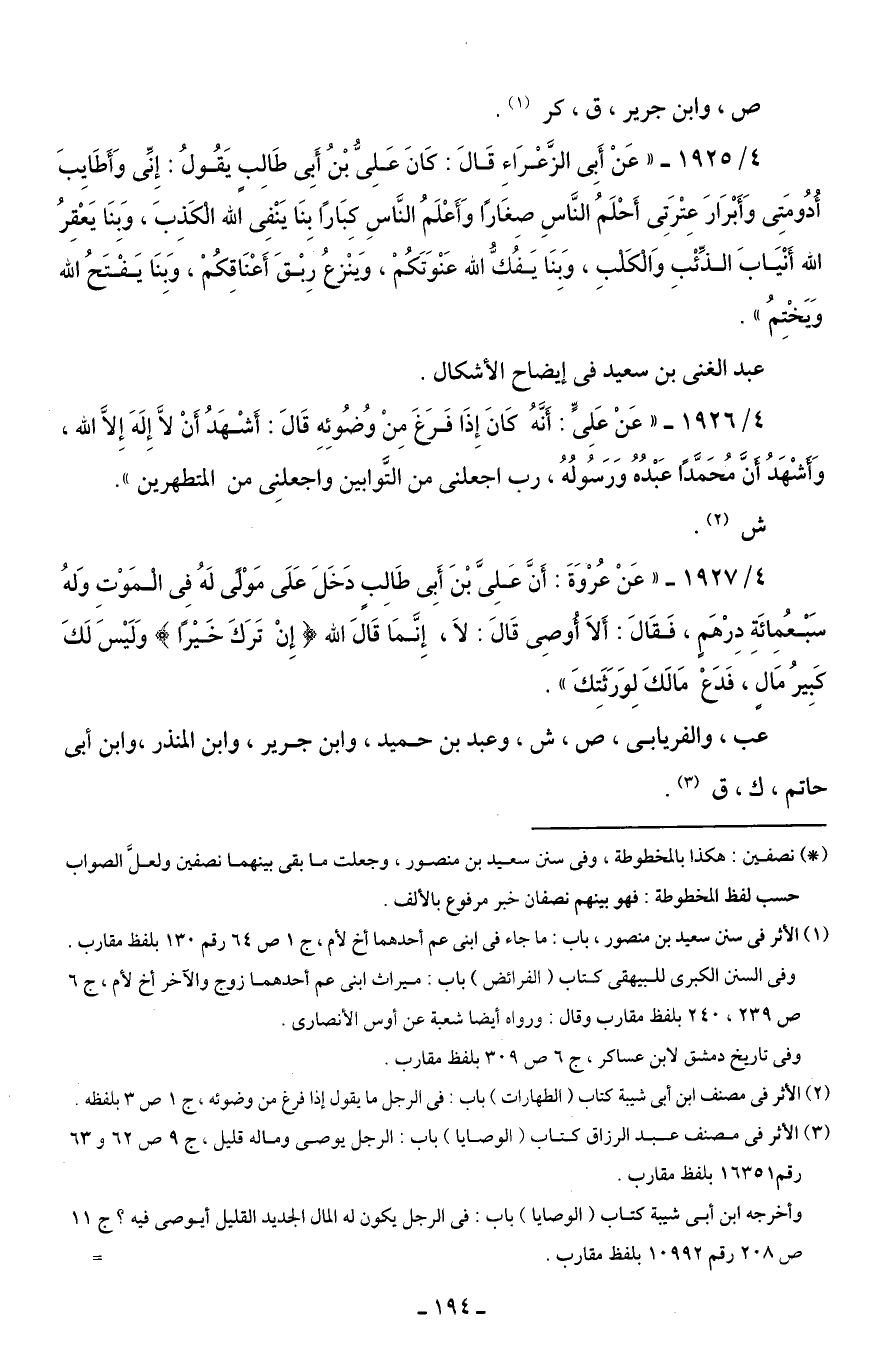 ص ، وابن جرير ، ق ، كر (١) .
٤/ ١٩٢٥ ـ « عَنْ أَبِى الزَّعْرَاءِ قَالَ : كَانَ عَلِىُّ بْنُ أَبِى طَالِبٍ يَقُولُ : إِنِّى وَأَطَايِبَ
أُدُومَتِى وَأَبْرَارَ عِتْرَتِى أَحْلَمُ النَّاسِ صِغَارًا وَأَعْلَمُ النَّاسِ كِبَارًا بِنَا يَنْفِى الله الْكَذِبَ ، وَبِنَا يَعْقِرُ
الله أَنْيَابَ الذِّئْبِ وَالْكَلْبِ ، وَبِنَا يَفُكُّ الله عَنْوَتَكُمْ ، وَيَنْزِعُ رِبْقَ أَعْنَاقِكُمْ ، وَبِنَا يَفْتَحُ الله
وَيَخْتِمُ » .
عبد الغنى بن سعيد فى إيضاح الأشكال .
٤/ ١٩٢٦ ـ « عَنْ عَلِىٍّ : أَنَّهُ كَانَ إِذَا فَرَغَ مِنْ وُضُوئِهِ قَالَ : أَشْهَدُ أَنْ لاَّ إِلَهَ إِلاَّ الله ،
وَأَشْهَدُ أَنَّ مُحَمَّدًا عَبْدُهُ وَرَسُولُهُ ، رب اجعلنى من التَّوابين واجعلنى من المتطهرين ».
ش (٢) .
٤/ ١٩٢٧ ـ « عَنْ عُرْوَةَ : أَنَّ عَلِىَّ بْنَ أَبِى طَالِبٍ دَخَلَ عَلَى مَوْلًى لَهُ فِى الْمَوْتِ وَلَهُ
سَبْعُمِائَةِ دِرْهَمٍ ، فَقَالَ : أَلاَ أُوصِى قَالَ : لاَ ، إِنَّمَا قَالَ الله ﴿ إِنْ تَرَكَ خَيْرًا ﴾ وَلَيْسَ لَكَ
كَبِيرُ مَالٍ ، فَدَعْ مَالَكَ لِوَرَثَتِكَ » .
عب ، والفريابى ، ص ، ش ، وعبد بن حميد ، وابن جرير ، وابن المنذر ،وابن أبى
حاتم ، ك ، ق (٣) .
(*) نصفين : هكذا بالمخطوطة ، وفى سنن سعيد بن منصور ، وجعلت ما بقى بينهما نصفين ولعلَّ الصواب
حسب لفظ المخطوطة : فهو بينهم نصفان خبر مرفوع بالألف .
(١) الأثر فى سنن سعيد بن منصور ، باب : ما جاء فى ابنى عم أحدهما أخ لأم ، ج ١ ص ٦٤ رقم ١٣٠ بلفظ مقارب .
وفى السنن الكبرى للبيهقى كتاب ( الفرائض ) باب : ميراث ابنى عم أحدهما زوج والآخر أخ لأم ، ج ٦
ص ٢٣٩ ، ٢٤٠ بلفظ مقارب وقال : ورواه أيضا شعبة عن أوس الأنصارى .
وفى تاريخ دمشق لابن عساكر ، ج ٦ ص ٣٠٩ بلفظ مقارب .
(٢) الأثر فى مصنف ابن أبى شيبة كتاب ( الطهارات ) باب : فى الرجل ما يقول إذا فرغ من وضوئه ، ج ١ ص ٣ بلفظه .
(٣) الأثر فى مصنف عبد الرزاق كتاب ( الوصايا ) باب : الرجل يوصى وماله قليل ، ج ٩ ص ٦٢ و ٦٣
رقم١٦٣٥١ بلفظ مقارب .
وأخرجه ابن أبى شيبة كتاب ( الوصايا ) باب : فى الرجل يكون له المال الجديد القليل أيوصى فيه ؟ ج ١١
ص ٢٠٨ رقم ١٠٩٩٢ بلفظ مقارب . =
ـ ١٩٤ ـ